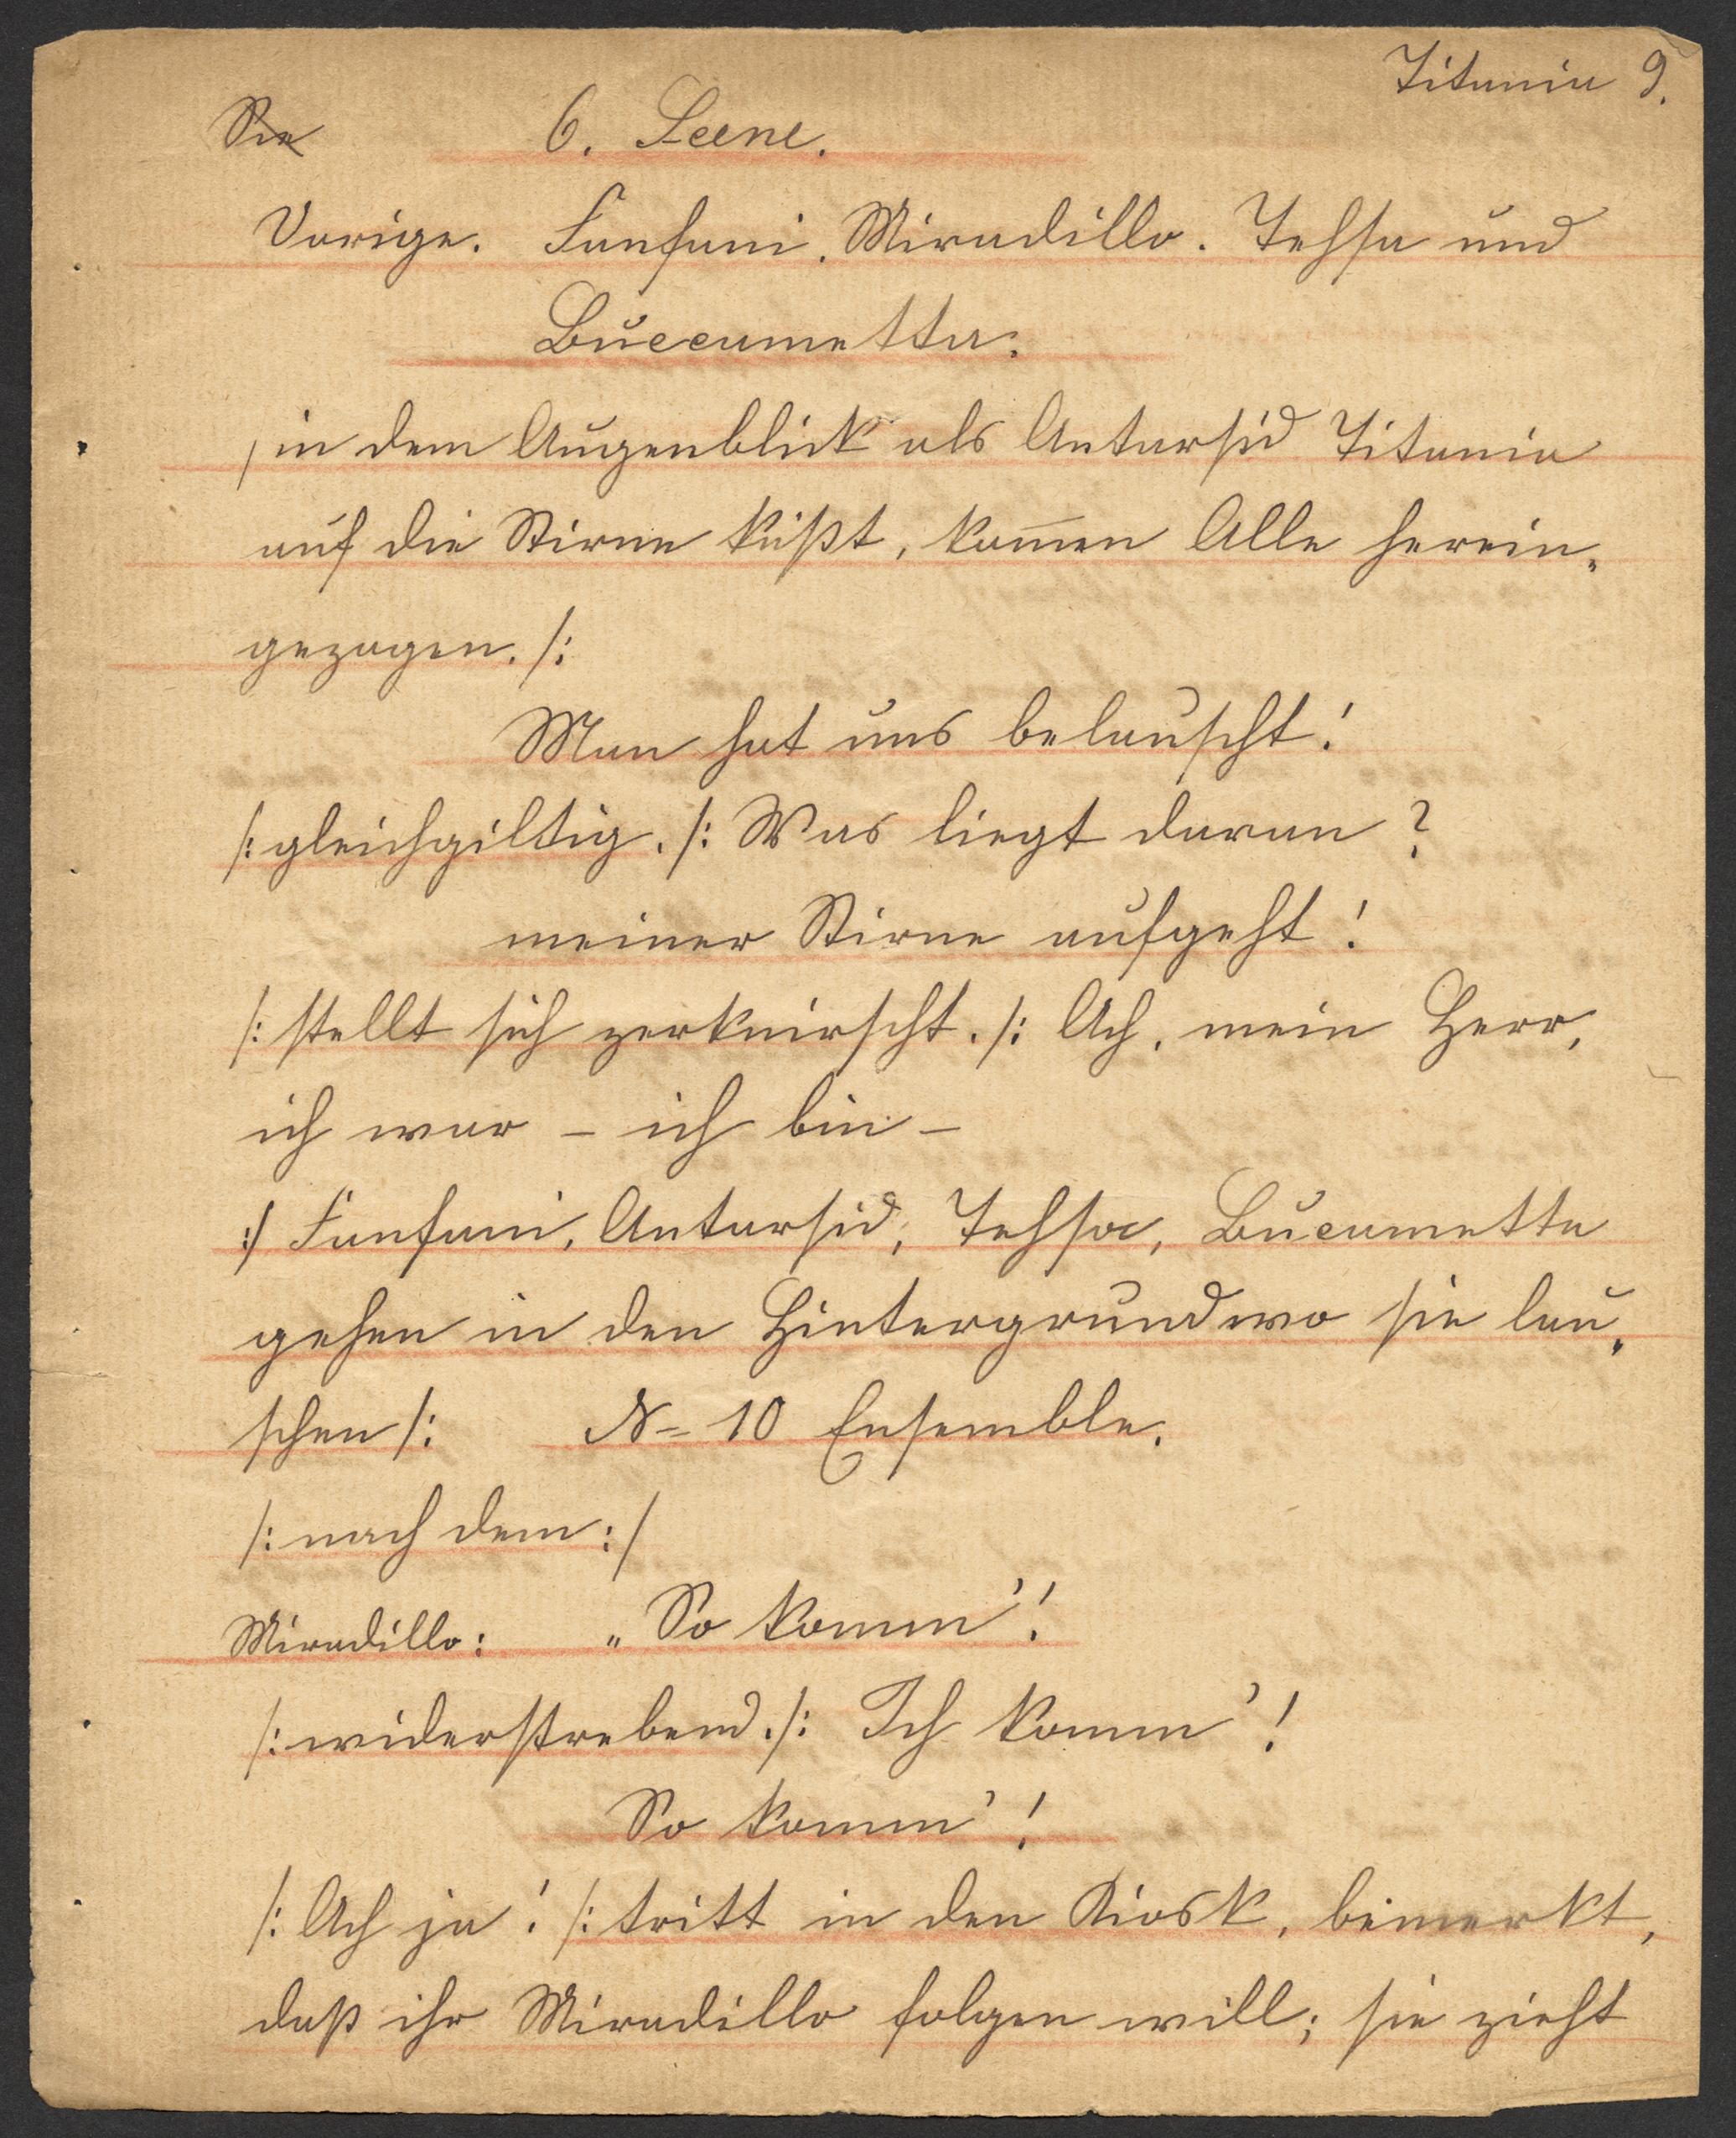 Titania 9.
Sie 6. Scene.
Vorige. Fanfani. Miradillo. Tessa und
Buccametta.
/in dem Augenblick als Antarsid Titania
auf die Stirne küßt, kom̅en Alle herein„
gezogen. /:
Man hat uns belauscht!
/: gleichgiltig. /: Was liegt daran?
meiner Stirne aufgeht!
/: stellt sich zerknirscht. /: Ach, mein Herr,
ich war – ich bin –
:/ Fanfani, Antarsid, Tessa, Bucametta
gehen in den Hintergrund wo sie lau„
schen /: N= 10 Ensemble.
/: nach dem :/
Miradillo: „So komm'!
/: widerstrebend. /: Ich komm'!
So komm'!
/: Ach ja! /: tritt in den Kiosk, bemerkt,
daß ihr Miradillo folgen will; sie zieht